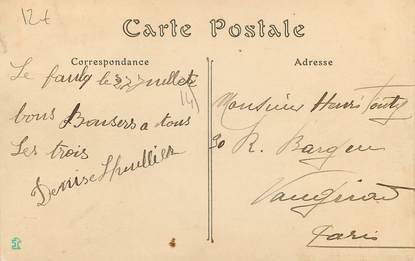 12€
Carte Postale
Correspondance
Adresse
Le le 23 juillet
14
bons Baisers a tous
Les trois
Denise Lhuillier
Monsieur Henri
30 R. Bargue
Vaugirard
Paris